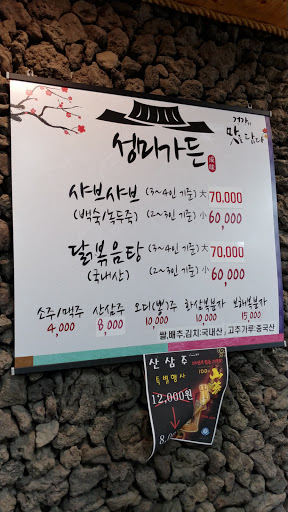 거기.. 맛도 답다
성미가든
샤브샤브 (3~4인 기준) 大 70,000
(백숙/녹두죽) (2~3인 기준) 小 60,000
닭볶음탕 (3~4인 기준) 大 70,000
(국내산) (2~3인 기준) 小 60,000
소주/맥주 산삼주 오디(뽕)주 한삼복분자 보해복분자
4,000 8,000 10,000 10,000 15,000
쌀,배추,김치:국내산, 고추가루:중국산
산삼주
특별행사
12,000원